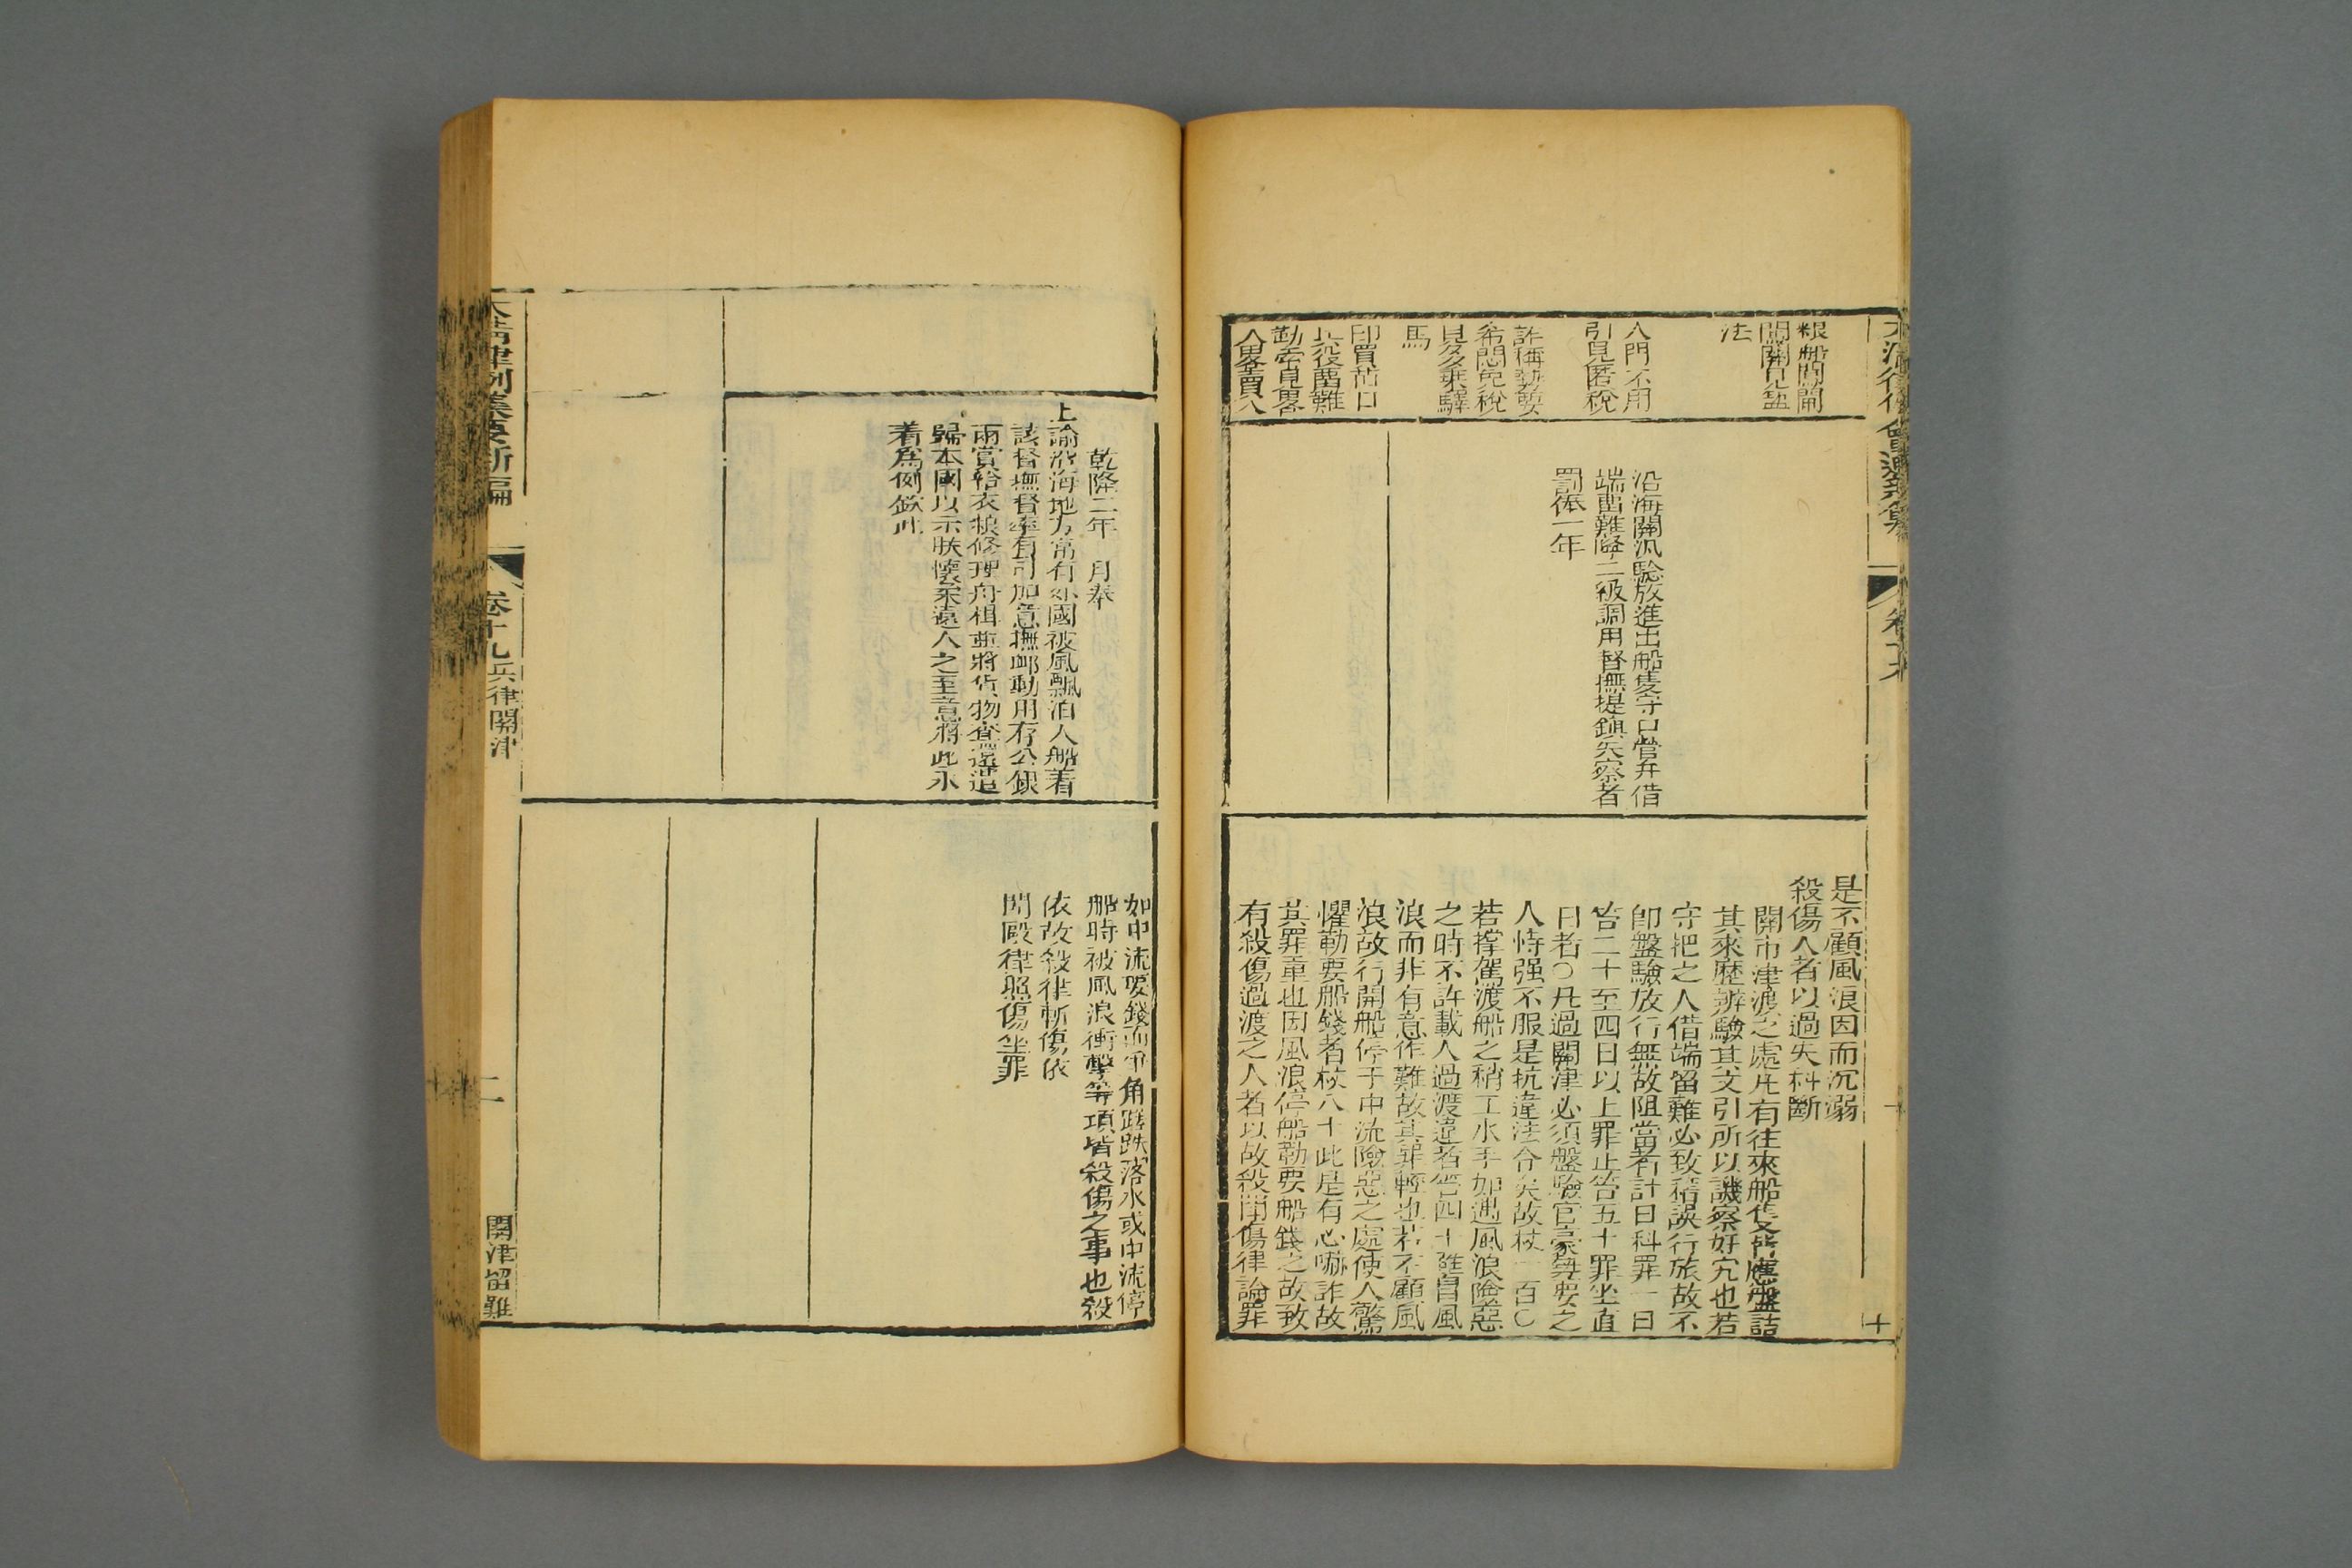 糧船閘關
閘關見盜
法
入門不用
引見匿稅
詐稱勢要
希圖免稅
見多乘驛
馬
卽買茄口
兵役留難
勒索見畧
人畧賣人
沿海關汛驗放進出船隻守口營弁借
端留難降二級調用督撫提鎮失察者
罰俸一年
是不顧風浪因而沉溺
殺傷人者以過失科斷
關市津渡之處凡有往來船隻皆應盤詰
其來歷辨驗其文引所以譏察奸宄也若
守把之人借端留難必致稽誤行旅故不
卽盤驗放行無故阻當者計日科罪一日
笞二十至四日以上罪止笞五十罪坐直
日者○凡過關津必須盤驗官豪勢要之
人恃强不服是抗違法令矣故杖一百○
若撑駕渡船之稍工水手如遇風浪險惡
之時不許載人過渡違者笞四十雖冒風
浪而非有意作難故其罪輕也若不顧風
浪故行開船停于中流險惡之處使人驚
懼勒要船錢者杖八十此是有心嚇詐故
其罪重也因風浪停船勒要船錢之故致
有殺傷過渡之人者以故殺鬥傷律論罪
十
乾隆二年　月奉
上諭沿海地方常有外國被風飄泊人船着
該督撫督率有司加意撫卹動用存公銀
兩賞給衣糧修理舟楫並將貨物查還遣
歸本國以示朕懷柔遠人之至意將此永
着爲例欽此
如中流要錢而爭角蹉跌落水或中流停
船時被風浪衝擊等項皆殺傷之事也殺
依故殺律斬傷依
鬥毆律照傷坐罪
大清律例集要新編
卷十九兵律關津
關津留難